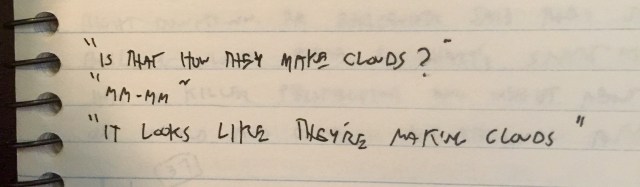 "IS THAT HOW THEY MAKE CLOUDS?"
"MM-MM"
"IT LOOKS LIKE THEY'RE MAKING CLOUDS"